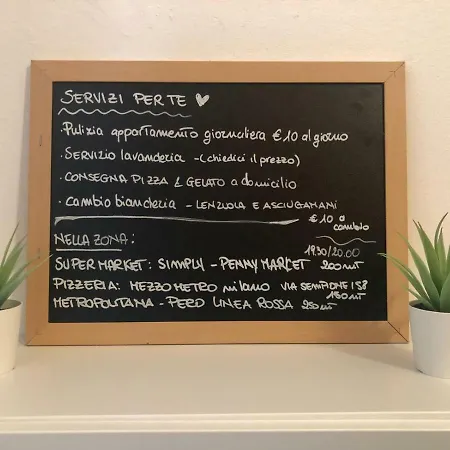 SERVIZI PER TE ♥
· Pulizia appartamento giornaliera €10 al giorno
· Servizio lavanderia - (chiedici il prezzo)
· CONSEGNA PIZZA & GELATO a domicilio
· cambio biancheria - LENZUOLA E ASCIUGAMANI
€10 a cambio
NELLA ZONA:
19.30/20.00
SUPERMARKET: SIMPLY - PENNY MARKET 200 mt
PIZZERIA: MEZZOMETRO milano VIA SEMPIONE 158
150 mT
METROPOLITANA - PERO LINEA ROSSA 250 mt